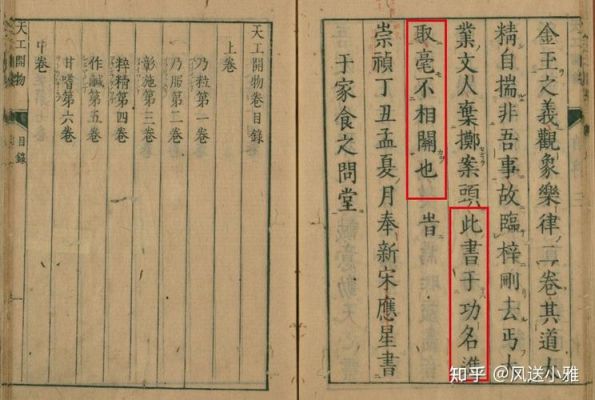 金王之義觀象樂律二卷其道太
精自揣非吾事故臨梓刪去丐大
業文人棄擲案頭此書于功名進
取毫不相關也 旹
崇禎丁丑孟夏月奉新宋應星書
于家食之問堂
天工開物卷目錄
上卷
乃粒第一卷
乃服第二卷
彰施第三卷
粹精第四卷
作鹹第五卷
甘嗜第六卷
中卷
天工開物 目錄
知乎 @风送小雅